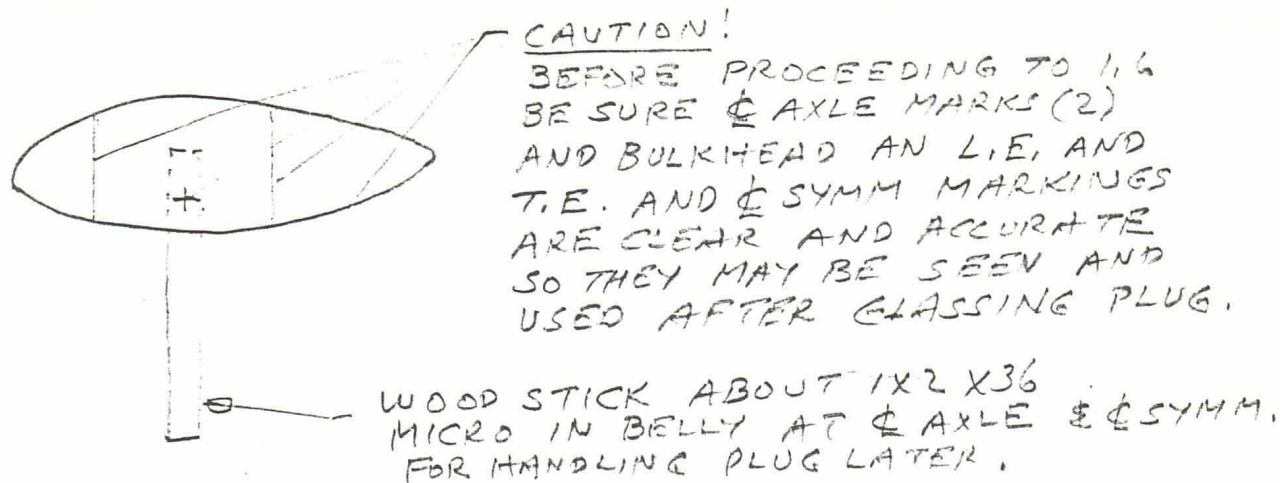 CAUTION!
BEFORE PROCEEDING TO 1,6
BE SURE ℄ AXLE MARKS (2)
AND BULKHEAD AN L.E. AND
T.E. AND ℄ SYMM MARKINGS
ARE CLEAR AND ACCURATE
SO THEY MAY BE SEEN AND
USED AFTER GLASSING PLUG.
WOOD STICK ABOUT 1X2 X36
MICRO IN BELLY AT ℄ AXLE & ℄ SYMM.
FOR HANDLING PLUG LATER.